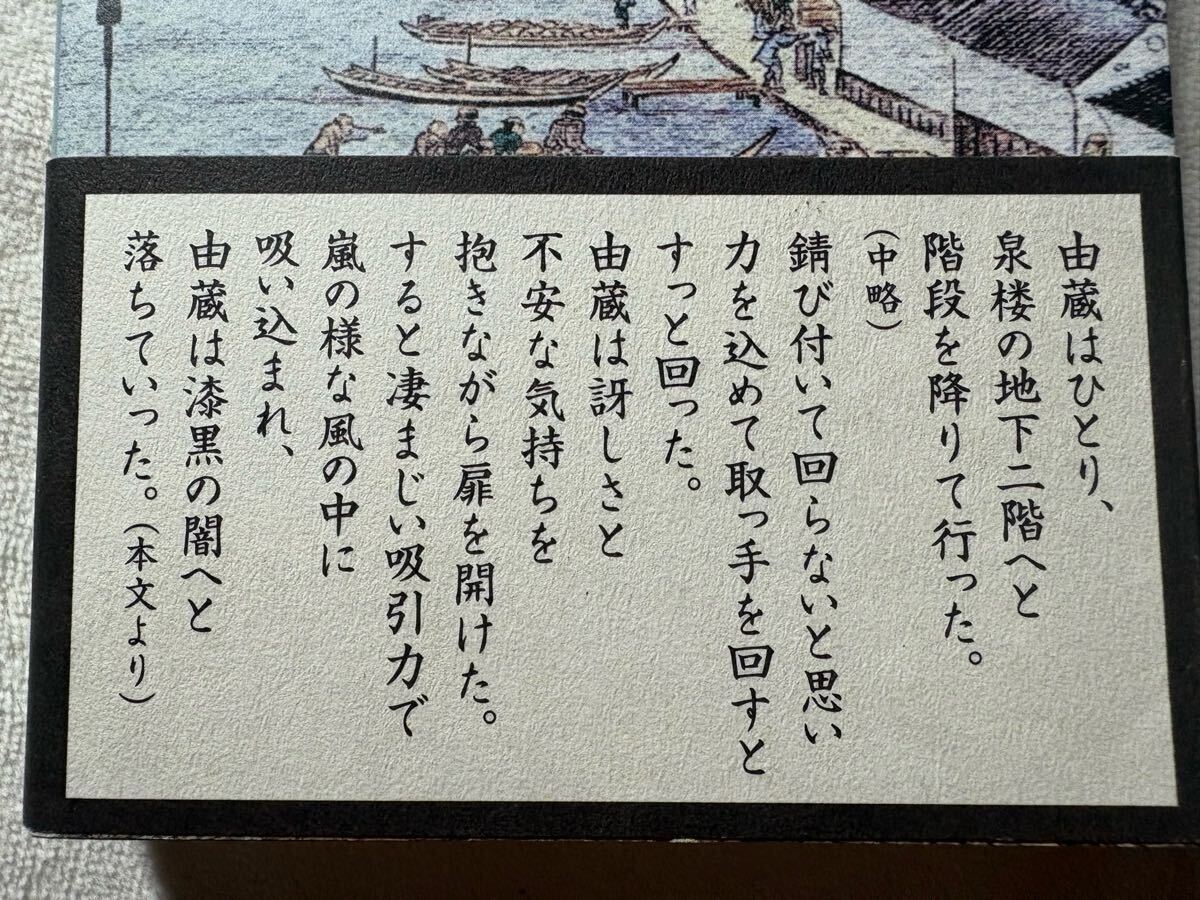 由蔵はひとり、
泉楼の地下二階へと
階段を降りて行った。
（中略）
錆び付いて回らないと思い
力を込めて取っ手を回すと
すっと回った。
由蔵は訝しさと
不安な気持ちを
抱きながら扉を開けた。
すると凄まじい吸引力で
嵐の様な風の中に
吸い込まれ、
由蔵は漆黒の闇へと
落ちていった。（本文より）